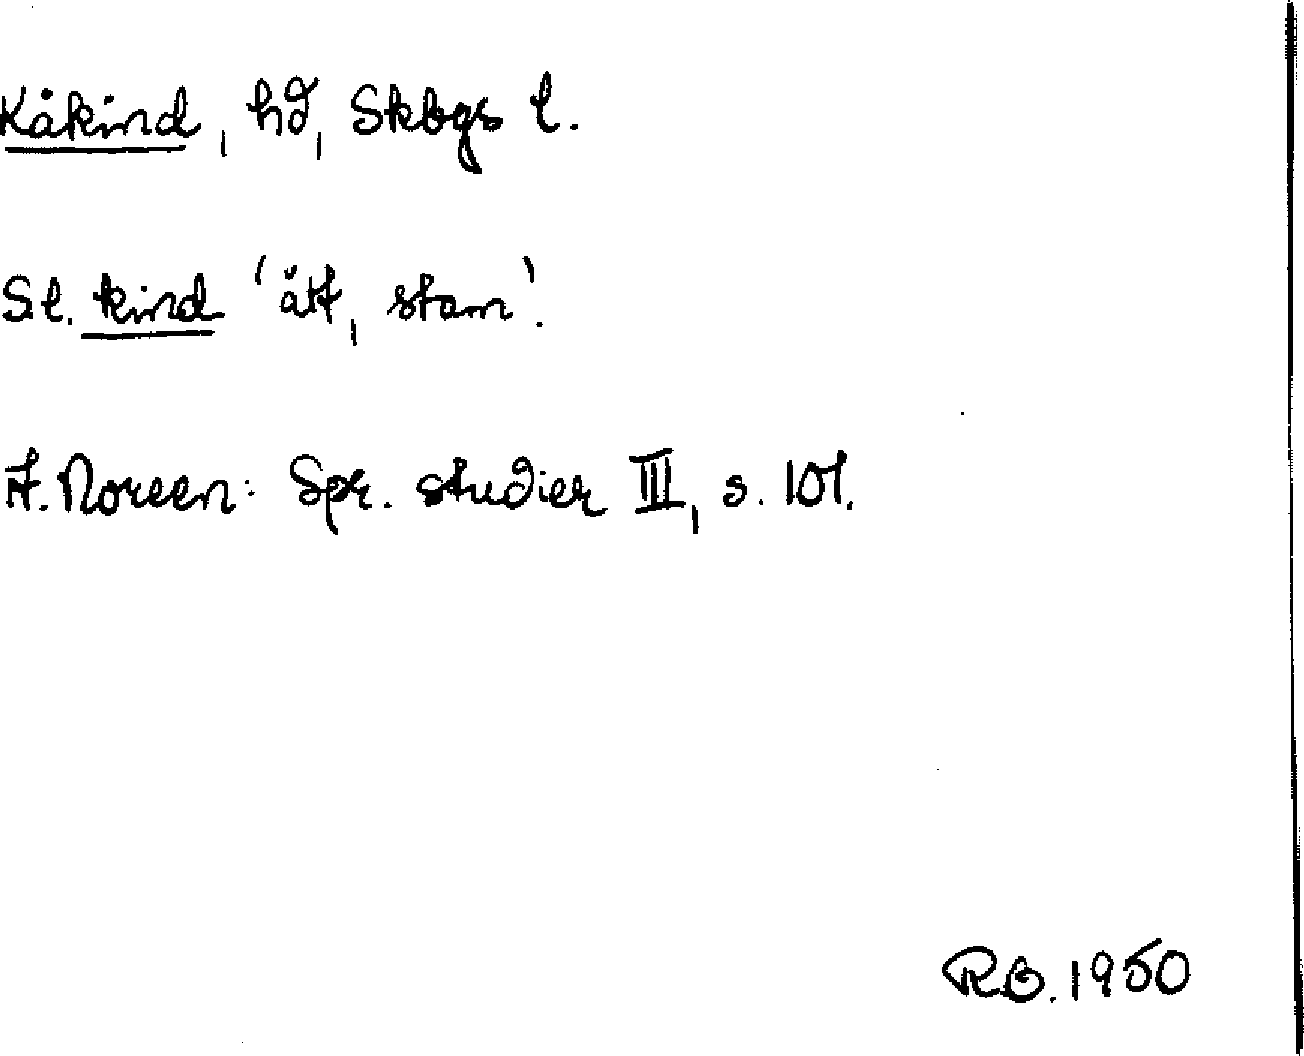 Kåkind, hd, Skbgs l.
S.l. kind 'ätt, stam'.
A. Noreen: Spr. studier III, s. 107.
R.O. 1950